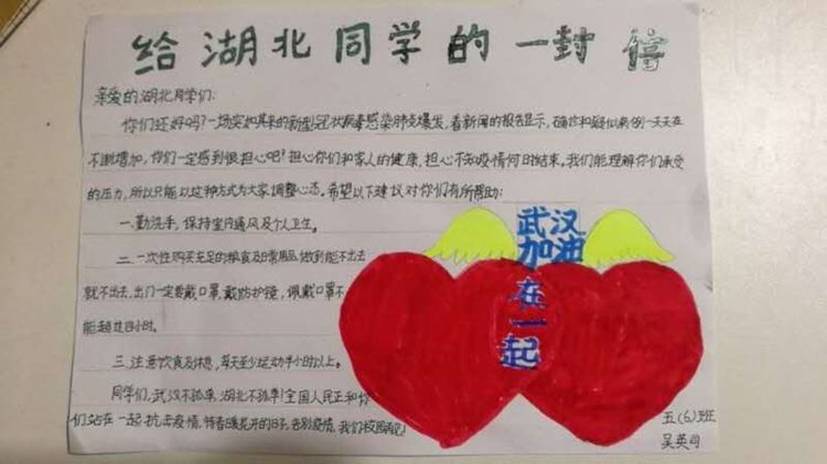 给湖北同学的一封信
亲爱的湖北同学们:
你们还好吗?一场突如其来的新型冠状病毒感染肺炎爆发,看新闻的报告显示,确诊和疑似病例一天天在
不断增加,你们一定感到很担心吧?担心你们和家人的健康,担心不知疫情何时结束。我们能理解你们承受
的压力,所以只能以这种方式为大家调整心态。希望以下建议对你们有所帮助:
一.勤洗手,保持室内通风及个人卫生。
二.一次性购买充足的粮食及日常用品,做到能不出去
就不出去,出门一定要戴口罩,戴防护镜,佩戴口罩不
能超过四小时。
三.注意饮食及休息,每天至少运动半小时以上。
同学们,武汉不孤单,湖北不孤单!全国人民正和你
们站在一起抗击疫情,待春暖花开的日子,告别疫情,我们校园再见!
武汉
加油
在
一
起
五(6)班
吴英